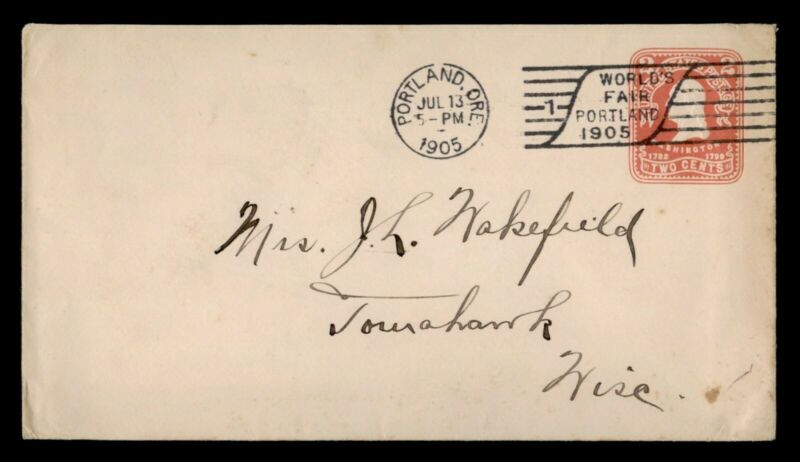 PORTLAND, ORE.
JUL 13
5-PM
1905
1
WORLD'S
FAIR
PORTLAND
1905
2 2
POSTAGE
WASHINGTON
1732 1799
TWO CENTS
Mrs. J. L. Wakefield
Tomahawk
Wisc.